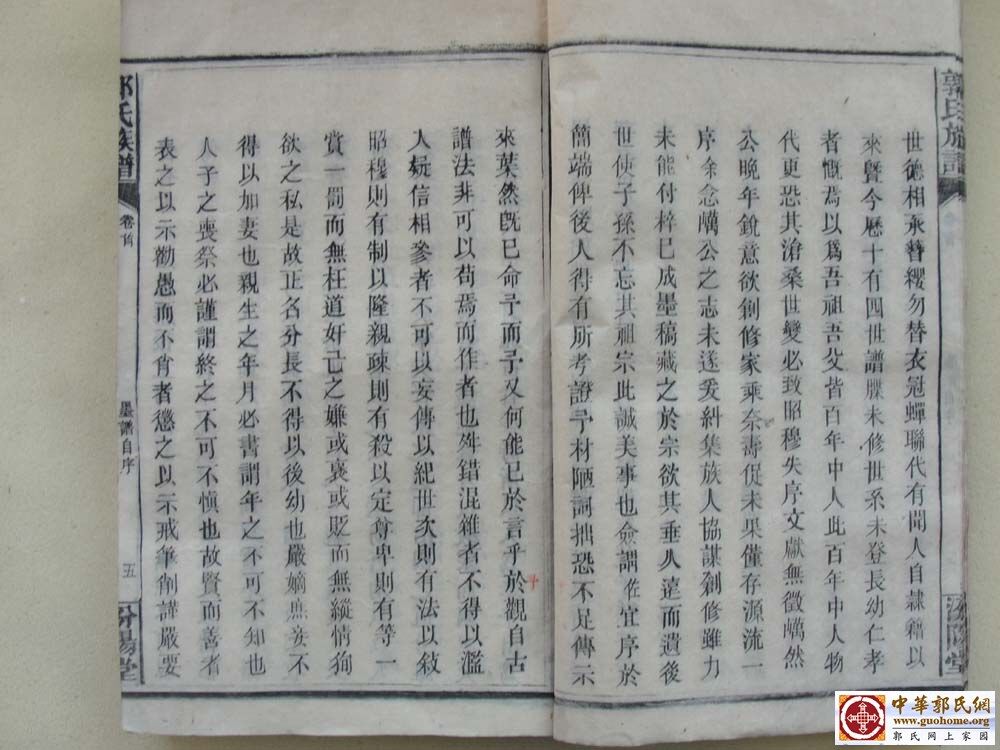 郭氏族譜
汾陽堂
世德相承簪纓勿替衣冠蟬聯代有聞人自隸籍以
來暨今歷十有四世譜牒未修世系未登長幼仁孝
者慨焉以爲吾祖吾父皆百年中人此百年中人物
代更恐其滄桑世變必致昭穆失序文獻無徵礪然
公晚年銳意欲創修家乘奈壽促未果僅存源流一
序余念礪公之志未遂爰糾集族人協謀創修雖力
未能付梓已成墨稿藏之於宗欲其垂久遠而遺後
世使子孫不忘其祖宗此誠美事也僉謂佐宜序於
簡端俾後人得有所考證予材陋詞拙恐不足傳示
來葉然旣已命予而予又何能已於言乎於觀自古
譜法非可以苟焉而作者也舛錯混雜者不得以濫
人疑信相參者不可以妄傳以紀世次則有法以敘
昭穆則有制以隆親疎則有殺以定尊卑則有等一
賞一罰而無枉道奸己之嫌或褒或貶而無縱情狥
欲之私是故正名分長不得以後幼也嚴嫡庶妾不
得以加妻也親生之年月必書謂年之不可不知也
人子之喪祭必謹謂終之不可不愼也故賢而善者
表之以示勸愚而不肖者懲之以示戒筆削謹嚴要
郭氏族譜
卷首
墨譜自序
五
汾陽堂
中華郭氏網
www.guohome.org
郭氏网上家园